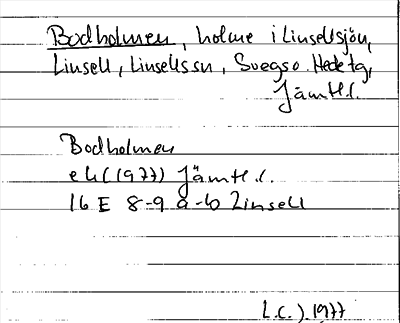 Bodholmen, holme i Linsellsjön,
Linsell, Linsells sn, Svegs o. Hede tg,
Jämtl. l.
Bodholmen
ek (1977) Jämtl. l.
16 E 8-9 a-b Linsell
L.C.J. 1977